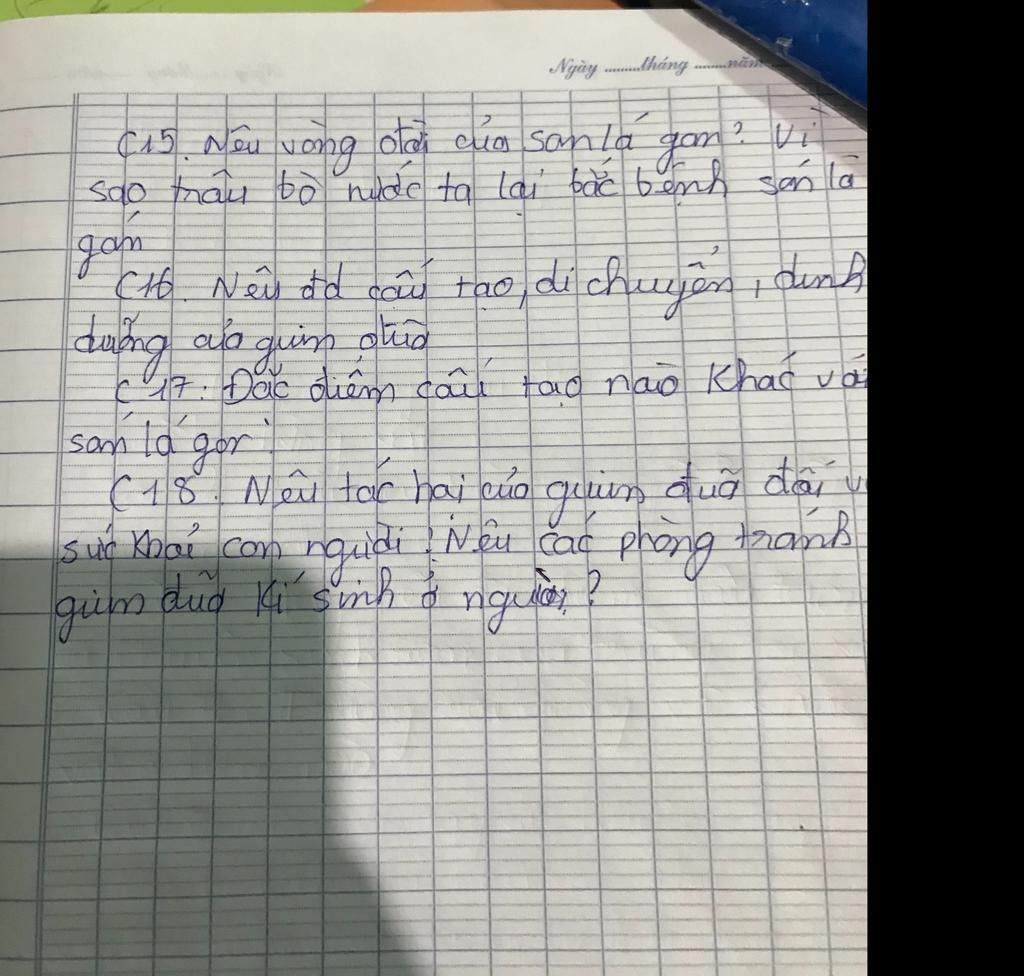 Ngày ........tháng ........năm
C15. Nêu vòng đời của sán lá gan? Vì
sao trâu bò nước ta lại bắc bệnh sán lá
gan
C16. Nêu đđ cấu tạo, di chuyển, dinh
dưỡng của giun đũa
C17: Đặc điểm cấu tạo nào khác với
sán lá gan
C18. Nêu tác hại của giun đũa đối v
sức khoẻ con người! Nêu các phòng tránh
giun đũa kí sinh ở người?